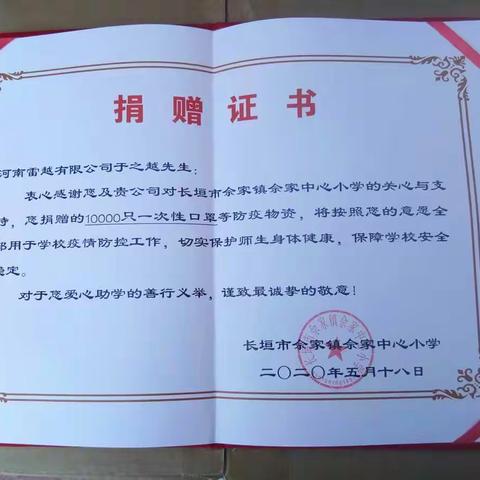 捐赠证书
河南雷越有限公司于之越先生：
衷心感谢您及贵公司对长垣市佘家镇佘家中心小学的关心与支
持，您捐赠的10000只一次性口罩等防疫物资，将按照您的意愿全
部用于学校疫情防控工作，切实保护师生身体健康，保障学校安全
稳定。
对于您爱心助学的善行义举，谨致最诚挚的敬意！
长垣市佘家镇佘家中心小学
二〇二〇年五月十八日